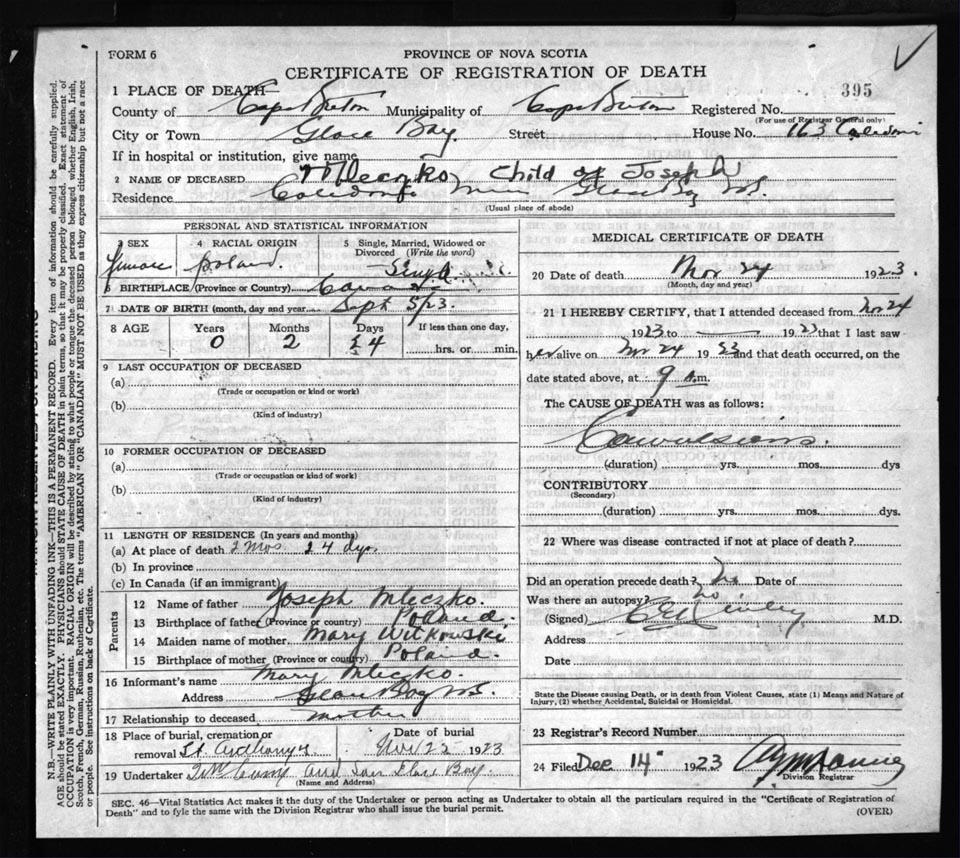 FORM 6
PROVINCE OF NOVA SCOTIA
CERTIFICATE OF REGISTRATION OF DEATH
1 PLACE OF DEATH
395
County of Cape Breton Municipality of Cape Breton Registered No.
(For use of Registrar General only)
City or Town Glace Bay. Street House No. 163 Caledonia
If in hospital or institution, give name
2 NAME OF DECEASED Mleczko child of Joseph
Residence Caledonia Mines Glace Bay N.S.
(Usual place of abode)
PERSONAL AND STATISTICAL INFORMATION
3 SEX 4 RACIAL ORIGIN 5 Single, Married, Widowed or Divorced (Write the word)
Female Poland. Single
6 BIRTHPLACE (Province or Country) Canada
7 DATE OF BIRTH (month, day and year) Sept 5/23.
8 AGE Years Months Days If less than one day,
0 2 24 hrs. or min.
9 LAST OCCUPATION OF DECEASED
(a)
(Trade or occupation or kind or work)
(b)
(Kind of industry)
10 FORMER OCCUPATION OF DECEASED
(a)
(Trade or occupation or kind of work)
(b)
(Kind of industry)
11 LENGTH OF RESIDENCE (In years and months)
(a) At place of death 2 mos 24 dys.
(b) In province
(c) In Canada (if an immigrant)
Parents
12 Name of father Joseph Mleczko.
13 Birthplace of father (Province or country) Poland.
14 Maiden name of mother Mary Witkowski
15 Birthplace of mother (Province or country) Poland.
16 Informant's name Mary Mleczko.
Address Glace Bay N.S.
17 Relationship to deceased mother
18 Place of burial, cremation or removal St Anthonys Date of burial Nov 25 1923
19 Undertaker and Son Glace Bay
(Name and Address)
MEDICAL CERTIFICATE OF DEATH
20 Date of death Nov 24 1923.
(Month, day and year)
21 I HEREBY CERTIFY, that I attended deceased from Nov 24
1923 to 1923 that I last saw
her alive on Nov 24 1923 and that death occurred, on the
date stated above, at 9 a.m.
The CAUSE OF DEATH was as follows:
Convulsions.
(duration) yrs. mos. dys
CONTRIBUTORY
(Secondary)
(duration) yrs. mos. dys.
22 Where was disease contracted if not at place of death?
Did an operation precede death? No Date of
Was there an autopsy? no
(Signed) M.D.
Address
Date
State the Disease causing Death, or in death from Violent Causes, state (1) Means and Nature of
Injury, (2) whether Accidental, Suicidal or Homicidal.
23 Registrar's Record Number
24 Filed Dec 14 1923
Division Registrar
SEC. 46—Vital Statistics Act makes it the duty of the Undertaker or person acting as Undertaker to obtain all the particulars required in the "Certificate of Registration of
Death" and to fyle the same with the Division Registrar who shall issue the burial permit.
(OVER)
N.B.—WRITE PLAINLY WITH UNFADING INK—THIS IS A PERMANENT RECORD. Every item of information should be carefully supplied.
AGE should be stated EXACTLY. PHYSICIANS should STATE CAUSE OF DEATH in plain terms, so that it may be properly classified. Exact statement of
OCCUPATION is very important. RACIAL ORIGIN will be described by stating to what people or tongue the deceased person belonged whether English, Irish,
Scotch, French, German, Russian, Ruthenian, etc. The terms "AMERICAN" OR "CANADIAN" MUST NOT BE USED as they express citizenship but not a race
or people. See instructions on back of Certificate.